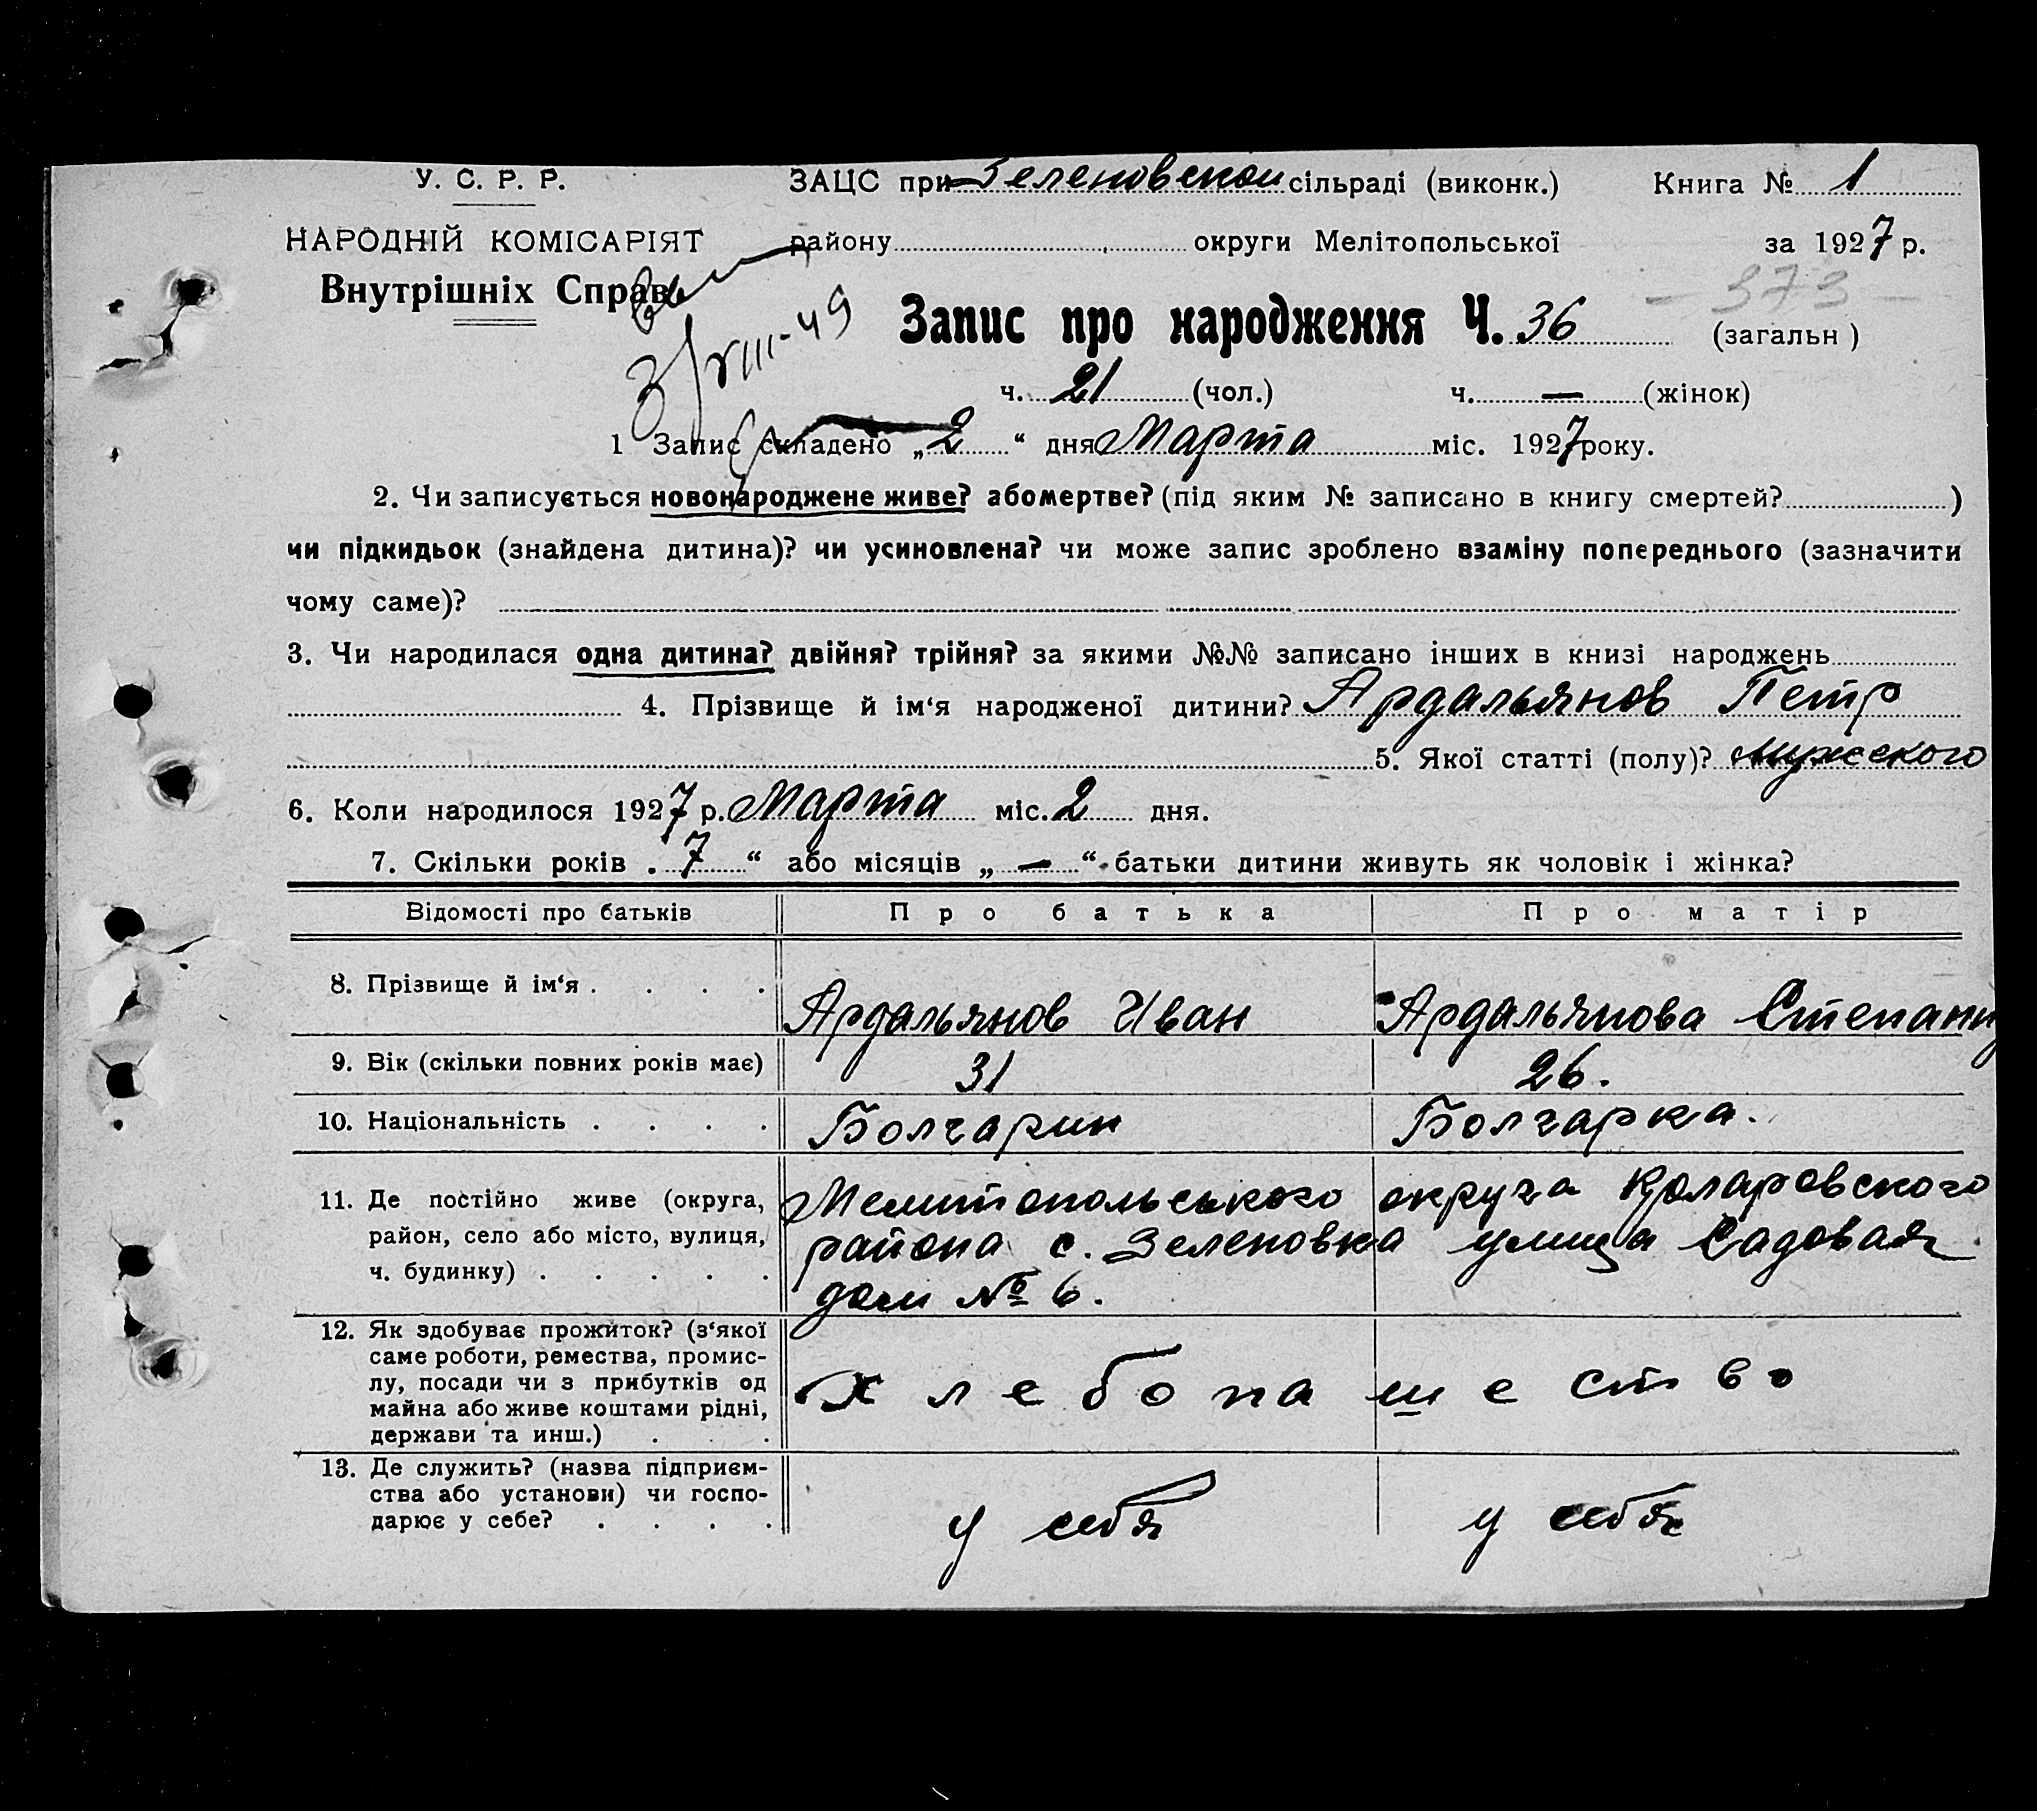 У. С. Р. Р.
ЗАЦС при Зеленовской сільраді (виконк.)
Книга № 1
НАРОДНІЙ КОМІСАРІЯТ
району округи Мелітопольської
за 1927 р.
Внутрішніх Справ
373
3/VIII-49
Запис про народження Ч. 36 (загальн)
ч. 21 (чол.) ч. — (жінок)
1 Запис складено „2“ дня Марта міс. 1927 року.
2. Чи записується новонароджене живе? або мертве? (під яким № записано в книгу смертей? )
чи підкидьок (знайдена дитина)? чи усиновлена? чи може запис зроблено взаміну попереднього (зазначити
чому саме)?
3. Чи народилася одна дитина? двійня? трійня? за якими №№ записано інших в книзі народжень
4. Прізвище й ім‘я народженої дитини? Ардальянов Петр
5. Якої статті (полу)? мужского
6. Коли народилося 1927 р. Марта міс. 2 дня.
7. Скільки років „7“ або місяців „—“ батьки дитини живуть як чоловік і жінка?
Відомості про батьків Про батька Про матір
8. Прізвище й ім‘я . . . .
Ардальянов Иван Ардальянова
9. Вік (скільки повних років має) 31 26.
10. Національність . . . . Болгарин Болгарка.
11. Де постійно живе (округа,
район, село або місто, вулиця,
ч. будинку) . . . . .
Мелитопольського округа Коларовского
района с. Зеленовка улица Садовая
дом № 6.
12. Як здобуває прожиток? (з‘якої
саме роботи, ремества, промис-
лу, посади чи з прибутків од
майна або живе коштами рідні,
держави та инш.) . . .
хлебопашество
13. Де служить? (назва підприєм-
ства або установи) чи госпо-
дарює у себе? . . . .
у себя у себя